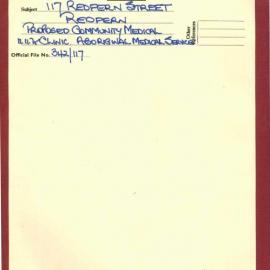 Subject 117 REDFERN STREET
REDFERN
PROPOSED COMMUNITY MEDICAL
CLINIC. ABORIGINAL MEDICAL SERVICE
Other References
Official File No. 342/117